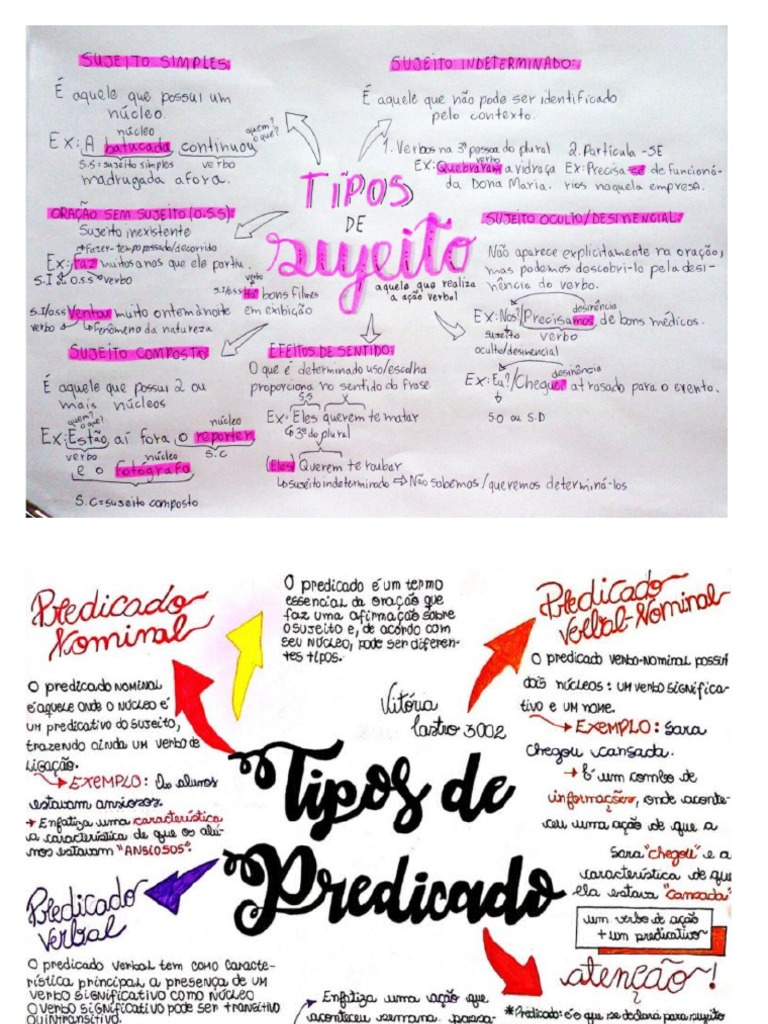 SUJEITO SIMPLES:
É aquele que possui um
núcleo.
núcleo
quem?
o que?
Ex: A batucada continuou
S.S = sujeito simples verbo
madrugada afora.
SUJEITO INDETERMINADO:
É aquele que não pode ser identificado
pelo contexto.
1. Verbos na 3ª pessoa do plural
verbo
Ex: Quebraram a vidraça
da Dona Maria.
2. Partícula -SE
Ex: Precisa-se de funcioná-
rios naquela empresa.
TIPOS
DE
sujeito
aquele que realiza
a ação verbal
ORAÇÃO SEM SUJEITO (O.S.S):
Sujeito inexistente
Fazer-tempo passado/decorrido
Ex: Faz muitos anos que ele partiu.
S.I ou O.S.S verbo
S.I/O.S.S Ventou muito ontem à noite
verbo fenômeno da natureza
verbo
S.I/O.S.S Há bons filmes
em exibição
SUJEITO OCULTO/DESINENCIAL:
Não aparece explicitamente na oração,
mas podemos descobri-lo pela desi-
nência do verbo.
desinência
Ex: Nós?/Precisamos de bons médicos.
sujeito verbo
oculto/desinencial
desinência
Ex: Eu?/Cheguei atrasado para o evento.
S.O ou S.D
SUJEITO COMPOSTO
É aquele que possui 2 ou
mais núcleos
quem?
o que?
núcleo
Ex: Estão aí fora o repórter
verbo núcleo S.C
e o fotógrafo
S.C = sujeito composto
EFEITOS DE SENTIDO:
O que é determinado uso/escolha
proporciona no sentido da frase.
S.S V
Ex: Eles querem te matar
3ª do plural
(Eles) Querem te roubar
sujeito indeterminado ⇒ Não sabemos/queremos determiná-los
Predicado
Nominal
O predicado é um termo
essencial da oração que
faz uma afirmação sobre
o sujeito e, de acordo com
seu núcleo, pode ser diferen-
tes tipos.
Predicado
Verbal-Nominal
O predicado nominal
é aquele onde o núcleo é
um predicativo do sujeito,
trazendo ainda um verbo de
ligação.
→ EXEMPLO: Os alunos
estavam ansiosos.
→ Enfatiza uma característica
a característica de que os alu-
nos estavam "ANSIOSOS".
Vitória
Castro 3002
O predicado verbo-nominal possui
dois núcleos: um verbo significa-
tivo e um nome.
→ EXEMPLO: Sara
chegou cansada.
→ É um combo de
informações, onde aconte-
ceu uma ação de que a
Sara "chegou" e a
característica de que
ela estava "cansada"
um verbo de ação
+ um predicativo
Tipos de
Predicado
Predicado
Verbal
O predicado verbal tem como caracte-
rística principal a presença de um
verbo significativo como núcleo
O verbo significativo pode ser transitivo
ou intransitivo.
→ Enfatiza uma ação que
aconteceu
atenção!
*Predicado: é o que se declara para sujeito